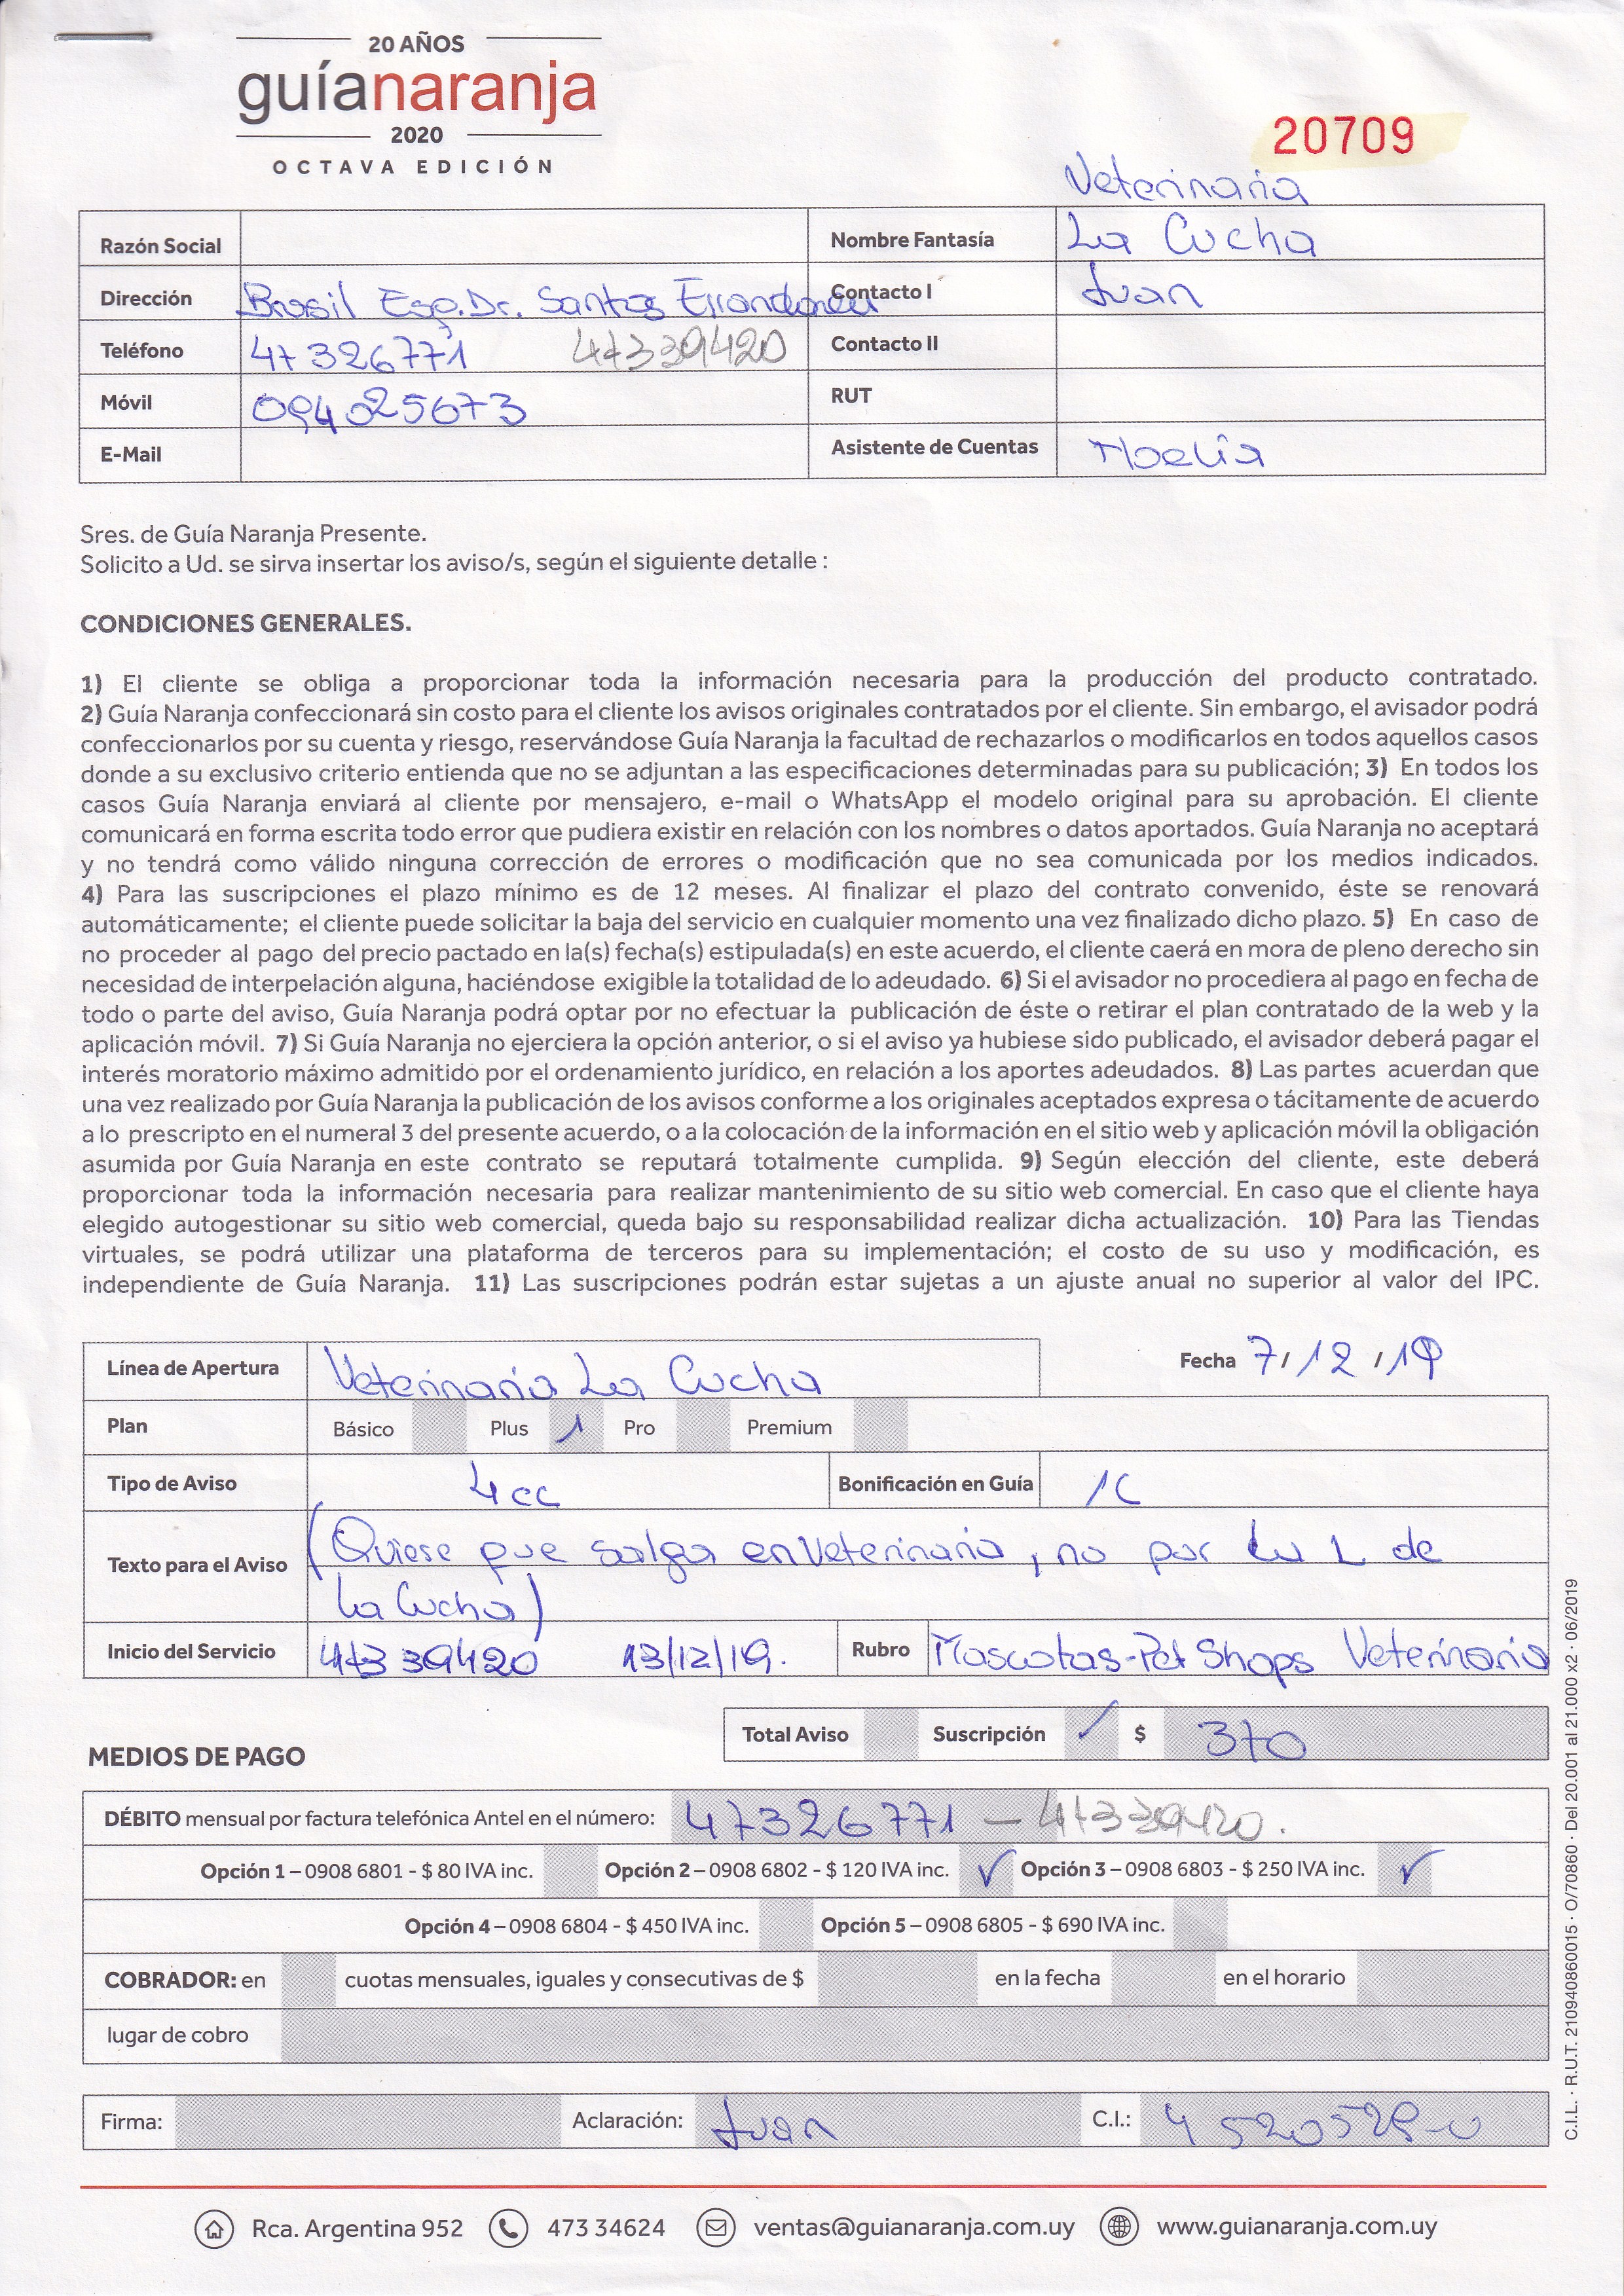 20 AÑOS
guíanaranja
2020
OCTAVA EDICIÓN
20709
Veterinaria
Razón Social
Nombre Fantasía La Cucha
Dirección Brasil Esq. Dr. Santos Errandonea
Contacto I Juan
Teléfono 47326771 47339420
Contacto II
Móvil 094025673
RUT
E-Mail
Asistente de Cuentas Noelia
Sres. de Guía Naranja Presente.
Solicito a Ud. se sirva insertar los aviso/s, según el siguiente detalle :
CONDICIONES GENERALES.
1) El cliente se obliga a proporcionar toda la información necesaria para la producción del producto contratado.
2) Guía Naranja confeccionará sin costo para el cliente los avisos originales contratados por el cliente. Sin embargo, el avisador podrá
confeccionarlos por su cuenta y riesgo, reservándose Guía Naranja la facultad de rechazarlos o modificarlos en todos aquellos casos
donde a su exclusivo criterio entienda que no se adjuntan a las especificaciones determinadas para su publicación; 3) En todos los
casos Guía Naranja enviará al cliente por mensajero, e-mail o WhatsApp el modelo original para su aprobación. El cliente
comunicará en forma escrita todo error que pudiera existir en relación con los nombres o datos aportados. Guía Naranja no aceptará
y no tendrá como válido ninguna corrección de errores o modificación que no sea comunicada por los medios indicados.
4) Para las suscripciones el plazo mínimo es de 12 meses. Al finalizar el plazo del contrato convenido, éste se renovará
automáticamente; el cliente puede solicitar la baja del servicio en cualquier momento una vez finalizado dicho plazo. 5) En caso de
no proceder al pago del precio pactado en la(s) fecha(s) estipulada(s) en este acuerdo, el cliente caerá en mora de pleno derecho sin
necesidad de interpelación alguna, haciéndose exigible la totalidad de lo adeudado. 6) Si el avisador no procediera al pago en fecha de
todo o parte del aviso, Guía Naranja podrá optar por no efectuar la publicación de éste o retirar el plan contratado de la web y la
aplicación móvil. 7) Si Guía Naranja no ejerciera la opción anterior, o si el aviso ya hubiese sido publicado, el avisador deberá pagar el
interés moratorio máximo admitido por el ordenamiento jurídico, en relación a los aportes adeudados. 8) Las partes acuerdan que
una vez realizado por Guía Naranja la publicación de los avisos conforme a los originales aceptados expresa o tácitamente de acuerdo
a lo prescripto en el numeral 3 del presente acuerdo, o a la colocación de la información en el sitio web y aplicación móvil la obligación
asumida por Guía Naranja en este contrato se reputará totalmente cumplida. 9) Según elección del cliente, este deberá
proporcionar toda la información necesaria para realizar mantenimiento de su sitio web comercial. En caso que el cliente haya
elegido autogestionar su sitio web comercial, queda bajo su responsabilidad realizar dicha actualización. 10) Para las Tiendas
virtuales, se podrá utilizar una plataforma de terceros para su implementación; el costo de su uso y modificación, es
independiente de Guía Naranja. 11) Las suscripciones podrán estar sujetas a un ajuste anual no superior al valor del IPC.
Línea de Apertura Veterinaria La Cucha
Fecha 7/12/19
Plan Básico Plus 1 Pro Premium
Tipo de Aviso 4cc Bonificación en Guía 1C
(Quiere que salga en Veterinaria, no por la L de
Texto para el Aviso
La Cucha)
Inicio del Servicio 47339420 13/12/19. Rubro Mascotas-Pet Shops Veterinaria
Total Aviso Suscripción ✓ $ 370
MEDIOS DE PAGO
DÉBITO mensual por factura telefónica Antel en el número: 47326771 - 47339420.
Opción 1 – 0908 6801 - $ 80 IVA inc. Opción 2 – 0908 6802 - $ 120 IVA inc. ✓ Opción 3 – 0908 6803 - $ 250 IVA inc. ✓
Opción 4 – 0908 6804 - $ 450 IVA inc. Opción 5 – 0908 6805 - $ 690 IVA inc.
COBRADOR: en cuotas mensuales, iguales y consecutivas de $ en la fecha en el horario
lugar de cobro
Firma: Aclaración: Juan C.I.: 4520528-0
Rca. Argentina 952 473 34624 ventas@guianaranja.com.uy www.guianaranja.com.uy
C.I.L. · R.U.T. 210940860015 · O/70860 · Del 20.001 al 21.000 x2 · 06/2019